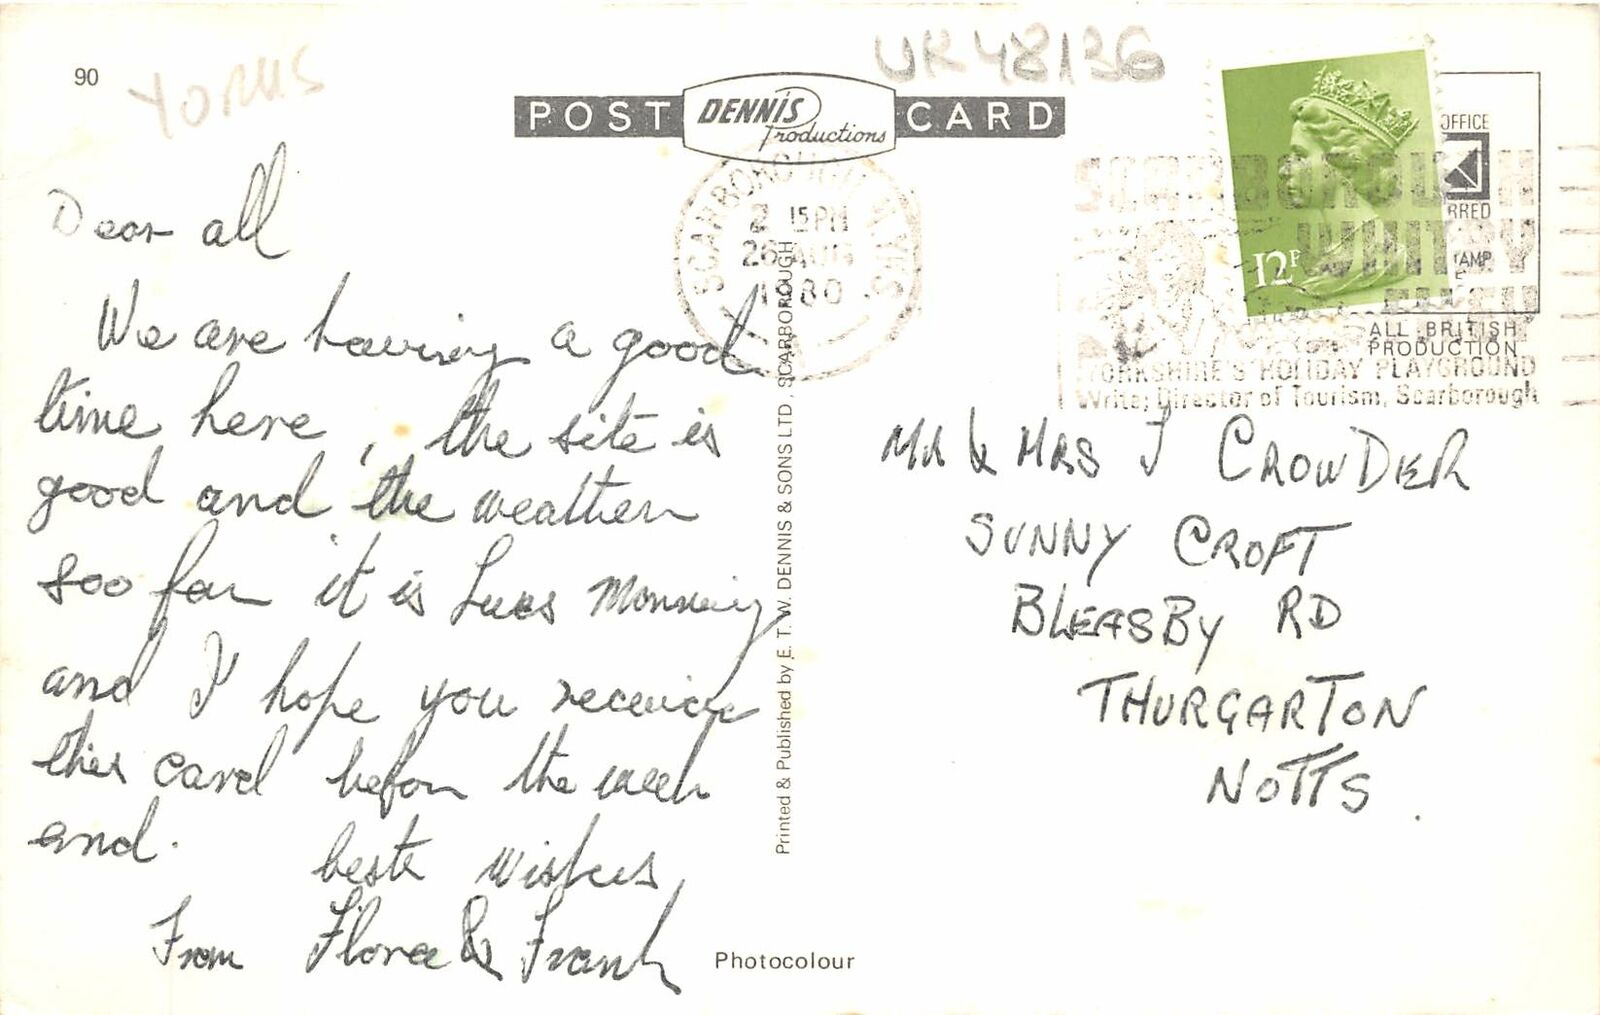 90
YORKS
UK48136
POST DENNIS Productions CARD
SCARBOROUGH N. YKS
2 15PM
26 AUG
1980
12P
OFFICE
RRED
TAMP
E
SCARBOROUGH
WHITBY
FILEY
ALL BRITISH
PRODUCTION
YORKSHIRE'S HOLIDAY PLAYGROUND
Write; Director of Tourism, Scarborough
Dear all
We are having a good
time here, the site is
good and the weather
soo far it is Lues Monning
and I hope you receive
this card befor the week
end.
beste wishes
From Flora & Frank
Printed & Published by E. T. W. DENNIS & SONS LTD., SCARBOROUGH
Photocolour
MR & MRS J CROWDER
SUNNY CROFT
BLEASBY RD
THURGARTON
NOTTS.